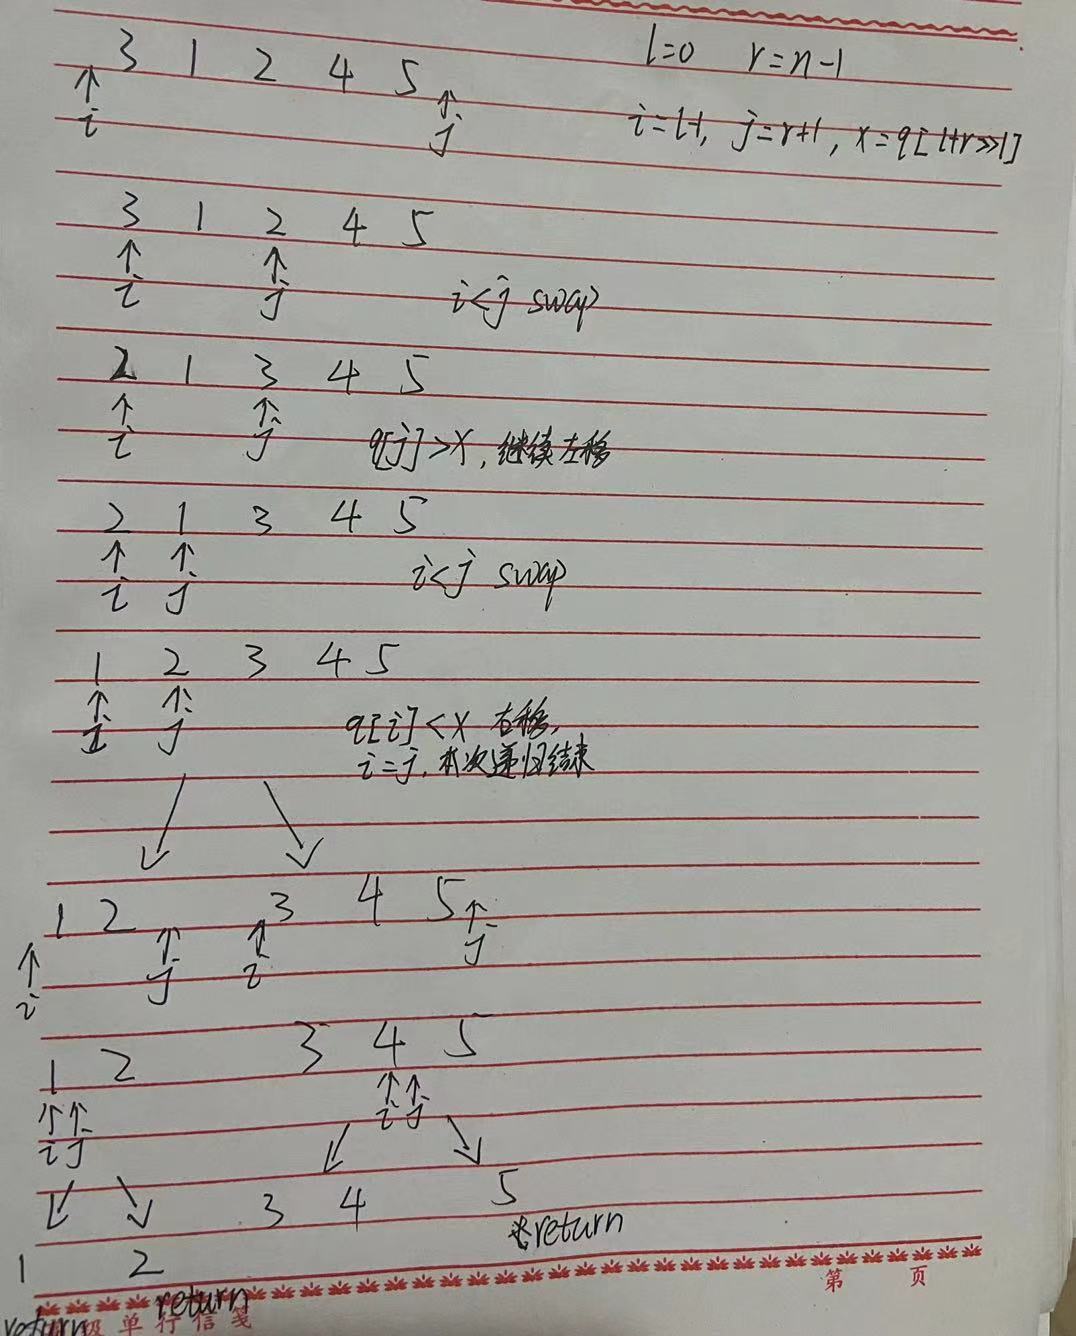 3 1 2 4 5
l=0 r=n-1
i j
i=l-1, j=r+1, x=q[l+r>>1]
3 1 2 4 5
i j
i<j swap
2 1 3 4 5
i j
q[j]>x, 继续左移
2 1 3 4 5
i j
i<j swap
1 2 3 4 5
i j
q[i]<x 右移,
i=j, 本次递归结束
1 2 3 4 5
i j i j
1 2 3 4 5
i j i j
3 4 5
return
1 2
return return
第 页
级单行信笺